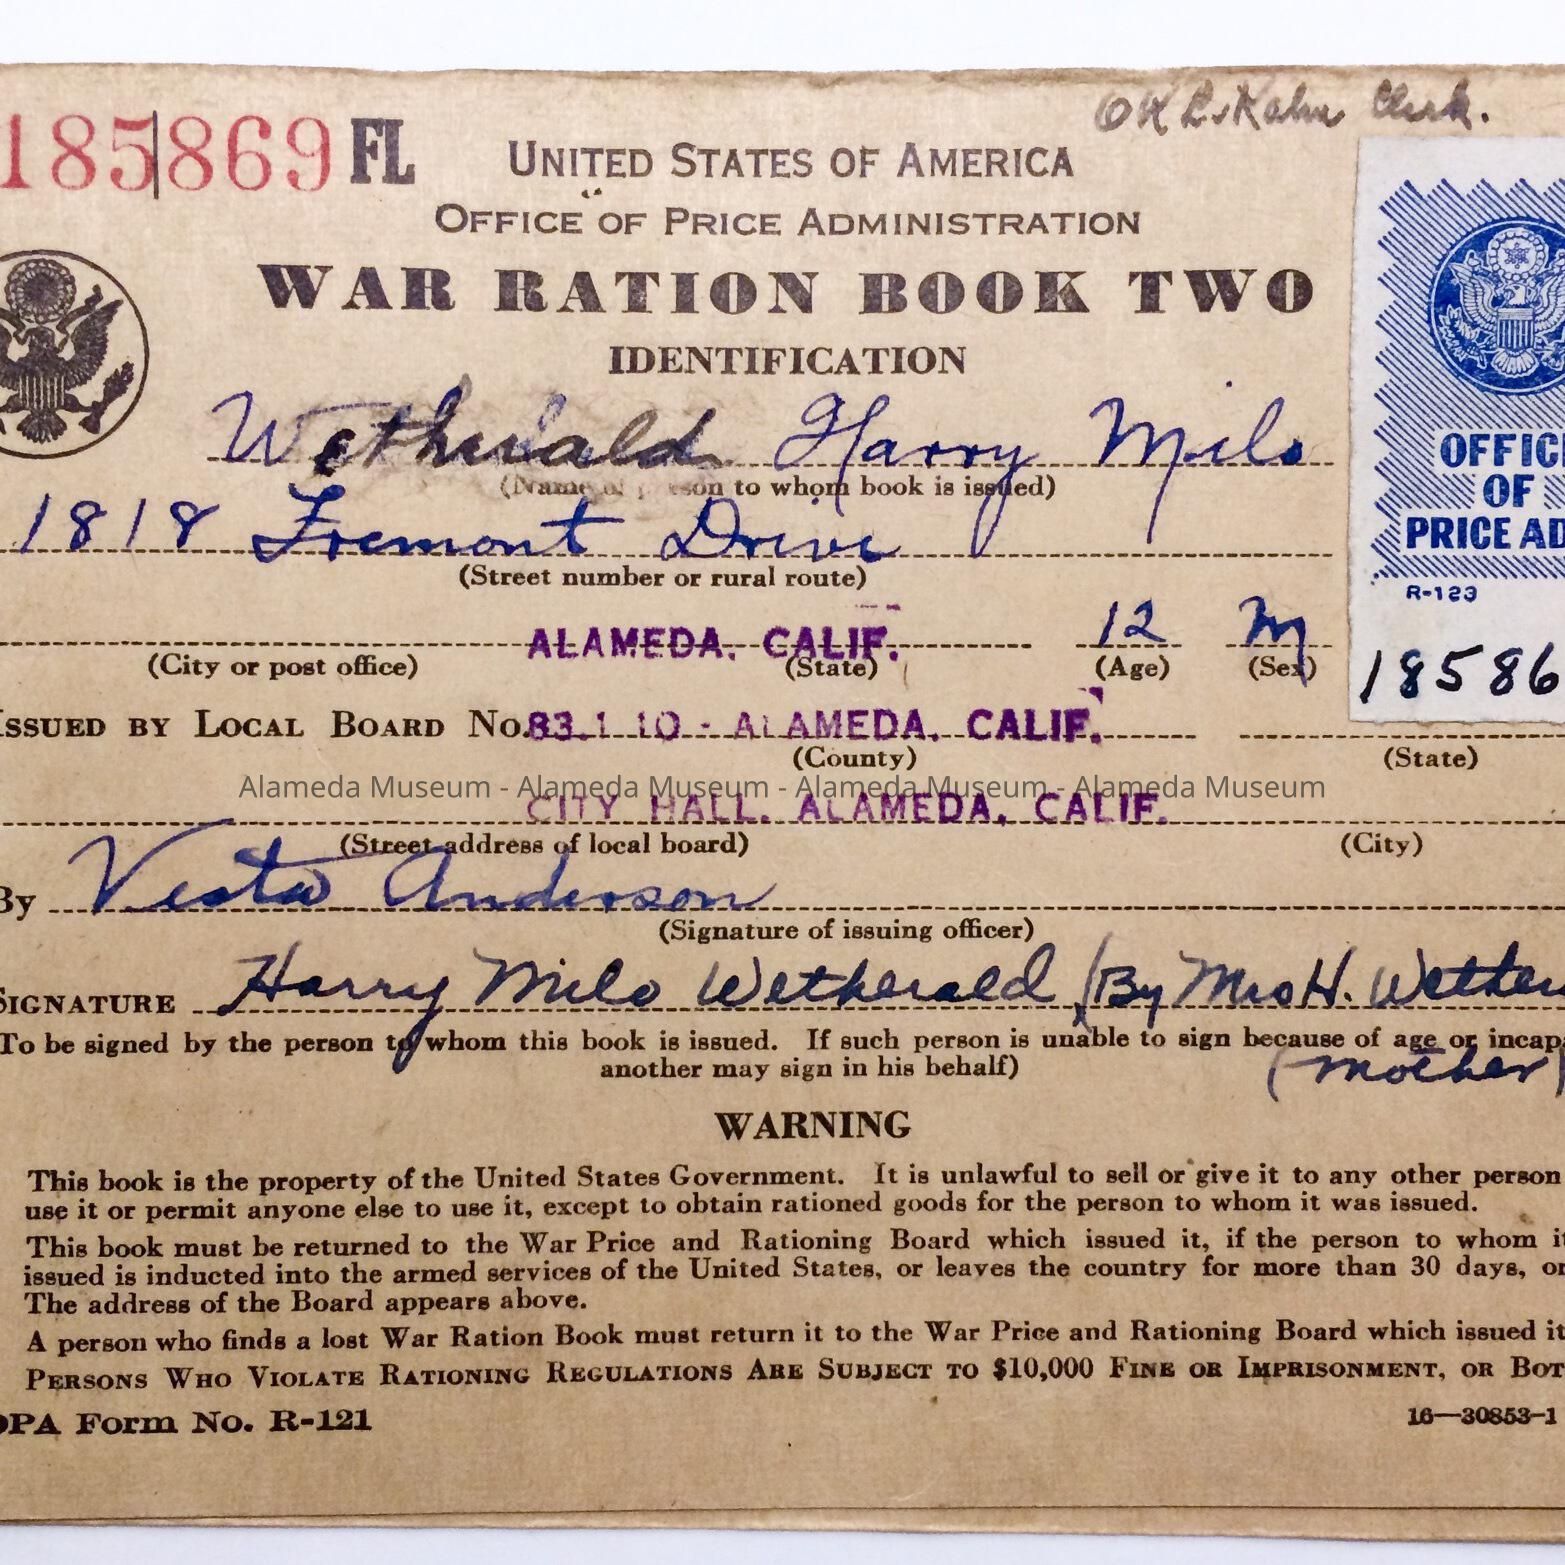 OK L. Kahn Clerk.
185869 FL
UNITED STATES OF AMERICA
OFFICE OF PRICE ADMINISTRATION
WAR RATION BOOK TWO
IDENTIFICATION
Wetherald Harry Milo
(Name of person to whom book is issued)
1818 Fremont Drive
(Street number or rural route)
ALAMEDA, CALIF. 12 M
(City or post office) (State) (Age) (Sex)
ISSUED BY LOCAL BOARD No. 83.1.10 - ALAMEDA, CALIF.
(County) (State)
Alameda Museum - Alameda Museum - Alameda Museum - Alameda Museum
CITY HALL, ALAMEDA, CALIF.
(Street address of local board) (City)
By Vesta Anderson
(Signature of issuing officer)
SIGNATURE Harry Milo Wetherald (By Mrs H. Wether
To be signed by the person to whom this book is issued. If such person is unable to sign because of age or incap
another may sign in his behalf)
(mother)
WARNING
This book is the property of the United States Government. It is unlawful to sell or give it to any other person
use it or permit anyone else to use it, except to obtain rationed goods for the person to whom it was issued.
This book must be returned to the War Price and Rationing Board which issued it, if the person to whom it
issued is inducted into the armed services of the United States, or leaves the country for more than 30 days, or
The address of the Board appears above.
A person who finds a lost War Ration Book must return it to the War Price and Rationing Board which issued it
PERSONS WHO VIOLATE RATIONING REGULATIONS ARE SUBJECT TO $10,000 FINE OR IMPRISONMENT, OR BOT
OPA Form No. R-121
16—30853-1
OFFIC
OF
PRICE AD
R-123
18586